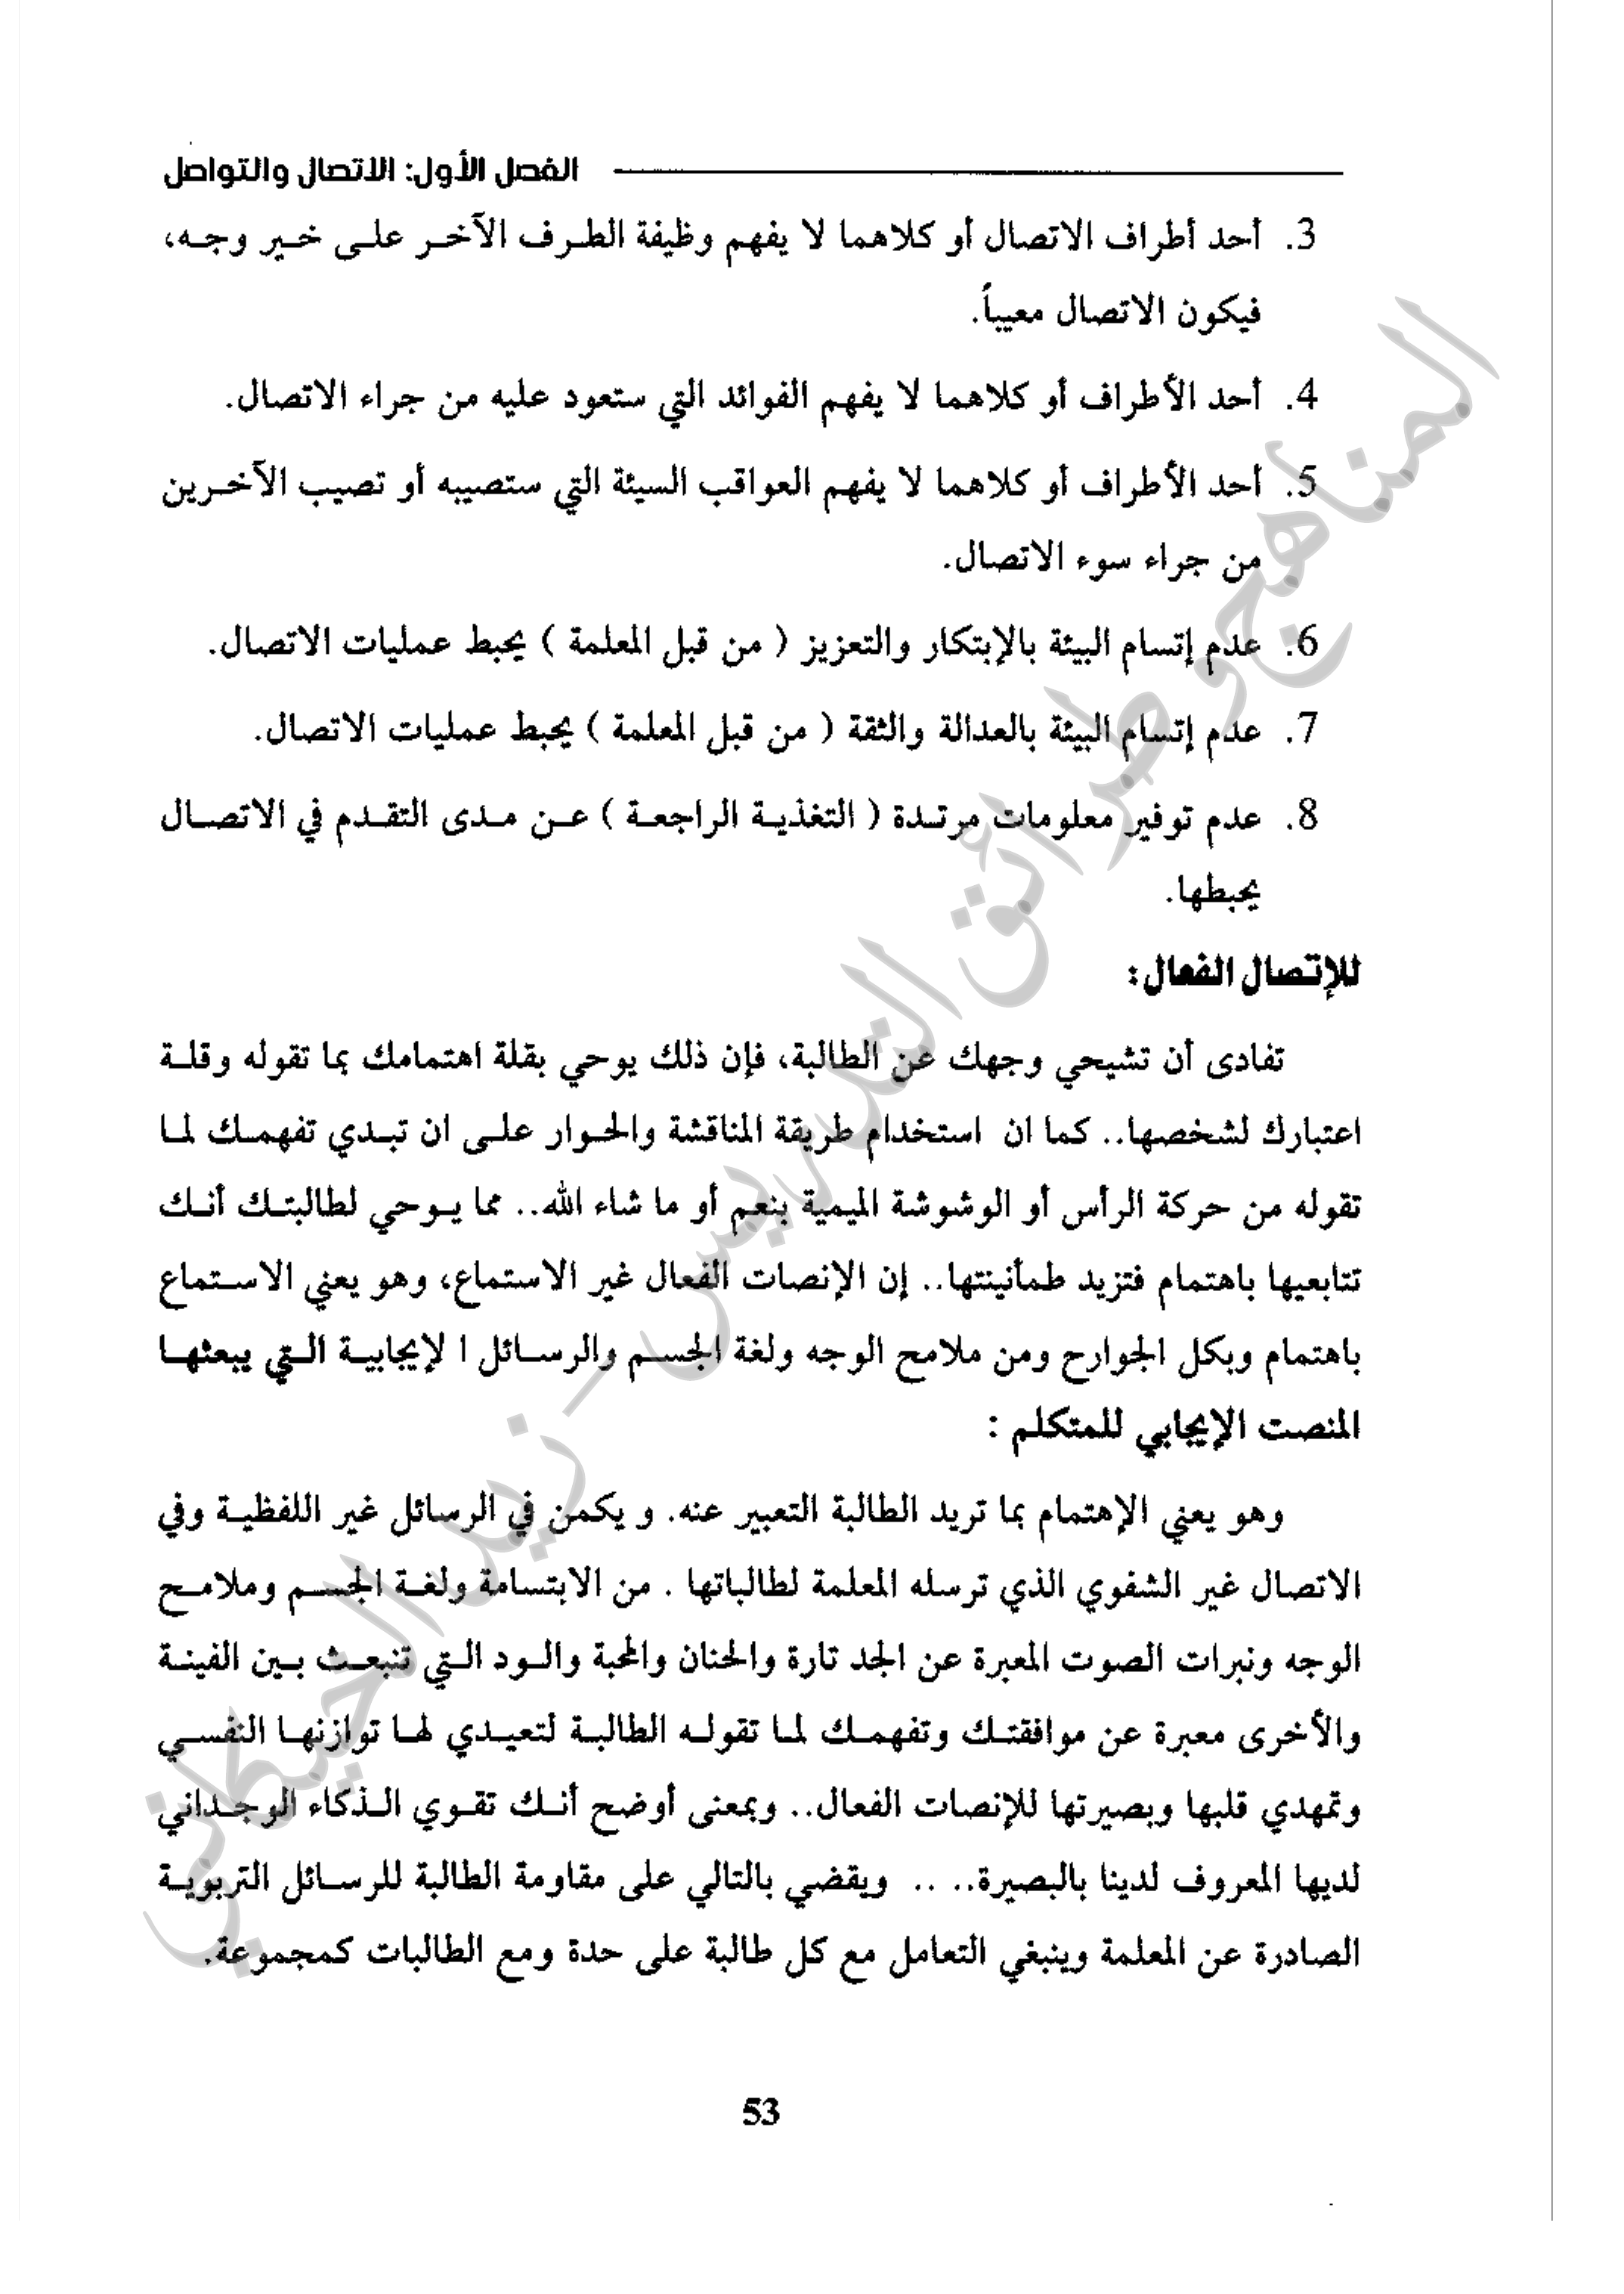 الفصل الأول: الاتصال والتواصل
3. أحد أطراف الاتصال أو كلاهما لا يفهم وظيفة الطرف الآخر على خير وجه،
فيكون الاتصال معيباً.
4. أحد الأطراف أو كلاهما لا يفهم الفوائد التي ستعود عليه من جراء الاتصال.
5. أحد الأطراف أو كلاهما لا يفهم العواقب السيئة التي ستصيبه أو تصيب الآخرين
من جراء سوء الاتصال.
6. عدم إتسام البيئة بالإبتكار والتعزيز ( من قبل المعلمة ) يحبط عمليات الاتصال.
7. عدم إتسام البيئة بالعدالة والثقة ( من قبل المعلمة ) يحبط عمليات الاتصال.
8. عدم توفير معلومات مرتدة ( التغذية الراجعة ) عن مدى التقدم في الاتصال
يحبطها.
للإتصال الفعال:
تفادى أن تشيحي وجهك عن الطالبة، فإن ذلك يوحي بقلة اهتمامك بما تقوله وقلة
اعتبارك لشخصها.. كما ان استخدام طريقة المناقشة والحوار على ان تبدي تفهمك لما
تقوله من حركة الرأس أو الوشوشة الميمية بنعم أو ما شاء الله.. مما يوحي لطالبتك أنك
تتابعيها باهتمام فتزيد طمأنينتها.. إن الإنصات الفعال غير الاستماع، وهو يعني الاستماع
باهتمام وبكل الجوارح ومن ملامح الوجه ولغة الجسم والرسائل ا لإيجابية التي يبعثها
المنصت الإيجابي للمتكلم :
وهو يعني الإهتمام بما تريد الطالبة التعبير عنه. و يكمن في الرسائل غير اللفظية وفي
الاتصال غير الشفوي الذي ترسله المعلمة لطالباتها . من الابتسامة ولغة الجسم وملامح
الوجه ونبرات الصوت المعبرة عن الجد تارة والحنان والمحبة والود التي تنبعث بين الفينة
والأخرى معبرة عن موافقتك وتفهمك لما تقوله الطالبة لتعيدي لها توازنها النفسي
وتمهدي قلبها وبصيرتها للإنصات الفعال.. وبمعنى أوضح أنك تقوي الذكاء الوجداني
لديها المعروف لدينا بالبصيرة.. .. ويقضي بالتالي على مقاومة الطالبة للرسائل التربوية
الصادرة عن المعلمة وينبغي التعامل مع كل طالبة على حدة ومع الطالبات كمجموعة.
53
المناهج وطرائق التدريس - زيد الخيكاني